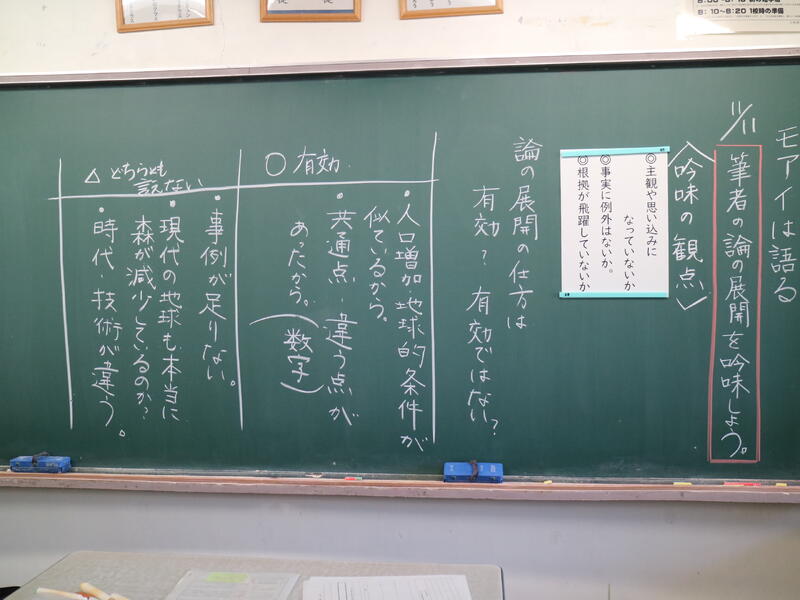 モアイは語る
11/11
筆者の論の展開を吟味しよう。
〈吟味の観点〉
◎主観や思い込みに
なっていないか
◎事実に例外はないか。
◎根拠が飛躍していないか
論の展開の仕方は
有効？有効ではない？
○有効
・人口増加、地球的条件が
似ているから。
・共通点・違う点が
あったから。（数字）
△どちらとも
言えない
・事例が足りない。
・現代の地球も本当に
森が減少しているのか？
・時代・技術が違う。
8:10~8:20 1校時の準備